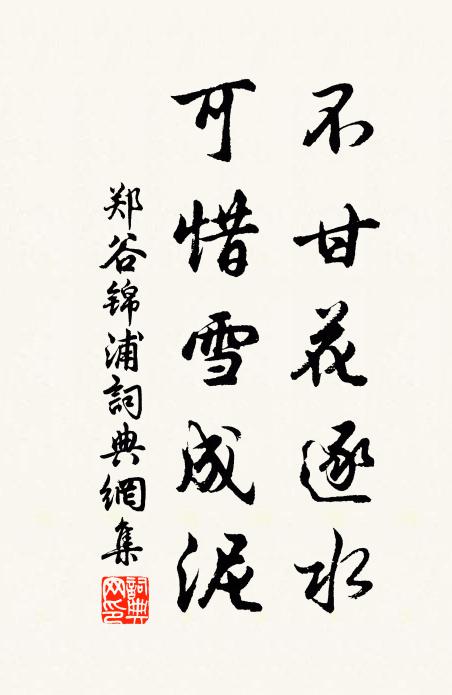 不甘花逐水
可惜雪成泥
郑谷锦浦詞典網集
詞典网印